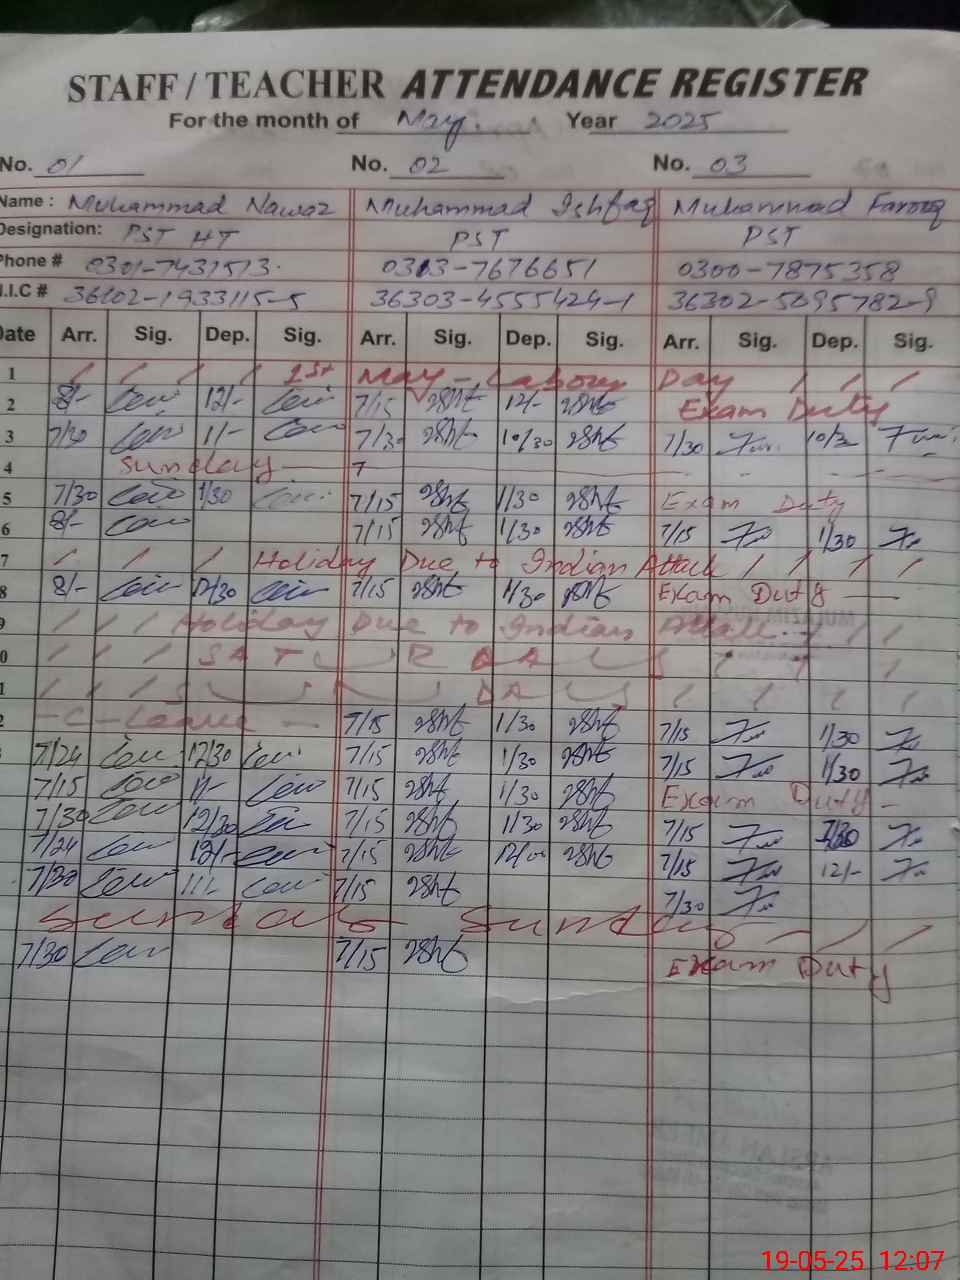 STAFF / TEACHER ATTENDANCE REGISTER
For the month of May. Year 2025
No. 01 No. 02 No. 03
Name : Muhammad Nawaz Muhammad Ishfaq Muhammad Farooq
Designation: PST HT PST PST
Phone # 0301-7431513. 0303-7676651 0300-7875358
N.I.C # 36602-1933115-5 36303-4555424-1 36302-5095782-9
Date Arr. Sig. Dep. Sig. Arr. Sig. Dep. Sig. Arr. Sig. Dep. Sig.
1 / / / / 1st May - Labour Day / / /
2 8/- 12/- 7/15 12/- Exam Duty
3 7/30 1/- 7/30 10/30 7/30 10/30
4 Sunday
5 7/30 1/30 7/15 1/30 Exam Duty
6 8/- 7/15 1/30 7/15 1/30
7 / / / Holiday Due to Indian Attack / / / /
8 8/- 12/30 7/15 1/30 Exam Duty —
9 / / / Holiday Due to Indian Attack - / / /
0 / / / SATURDAY / / /
1 / / / SUNDAY / / / /
2 - C - Leave - 7/15 1/30 7/15 1/30
7/24 12/30 7/15 1/30 7/15 1/30
7/15 1/- 7/15 1/30 Exam Duty -
7/30 12/30 7/15 1/30 7/15 1/30
7/24 12/- 7/15 12/00 7/15 12/-
7/30 11/- 7/15 7/30
Sunday Sunday - / /
7/30 7/15 Exam Duty
19-05-25 12:07